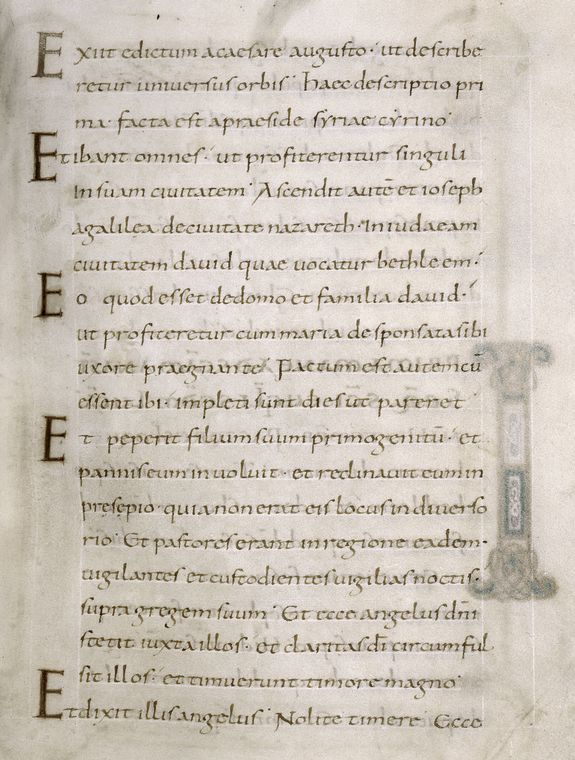 Exiit edictum acaesare augusto· ut describe
retur universus orbis· haec descriptio pri
ma· facta est apraeside syriae cyrino·
Et ibant omnes· ut profiterentur singuli
in suam civitatem· Ascendit autē et ioseph
agalilęa decivitate nazareth· iniudaeam
civitatem david quae vocatur bethleem·
Eo quod esset dedomo et familia david·
ut profiteretur cum maria desponsata sibi
uxore praegnante· Factum est autem cū
essent ibi· impleti sunt dies ut pareret·
Et peperit filium suum primogenitū· et
pannis eum involvit· et reclinavit eum in
presepio· quia non erat eis locus in diverso
rio· Et pastores erant in regione eadem·
vigilantes et custodientes vigilias noctis·
supra gregem suum· Et ecce angelus dn̄i
stetit iuxta illos· et claritas dī circumful
sit illos· et timuerunt timore magno·
Et dixit illis angelus· Nolite timere· Ecce